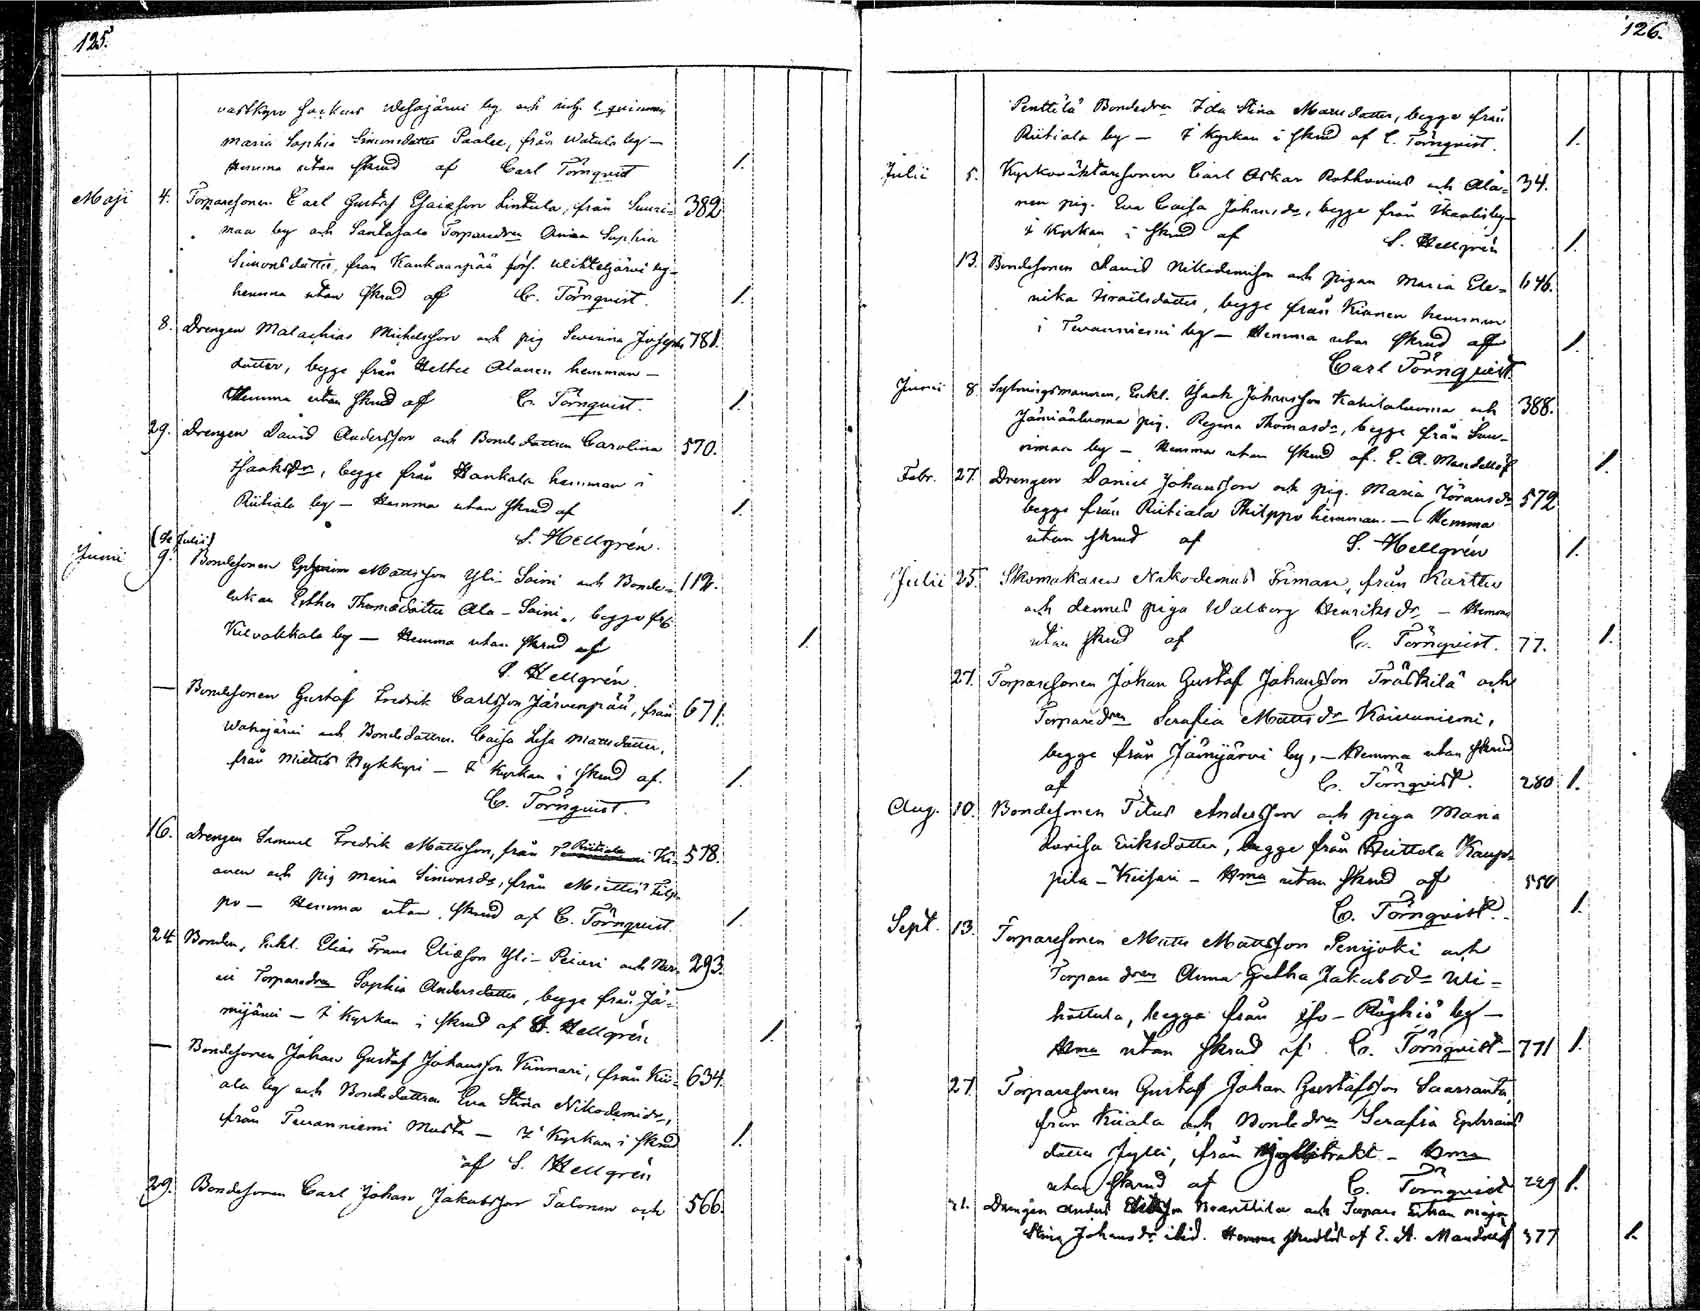 125.
by och
Maria Sophia Simonsdotter Paalee, från Watula by —
Hemma utan skrud af Carl Törnqvist
1.
Maji 4. Torparesonen Carl Gustaf Esaiæson Lintula, från Suuri- 382
maa by och Torparedren Sophia
Simonsdotter, från Kankaanpää by —
hemma utan skrud af C. Törnqvist.
1.
8. Drengen Malachias Michelsson och pig Severina Josephs 781.
dotter, begge från Alanen hemman —
Hemma utan skrud af C. Törnqvist.
1.
29. Drengen David Andersson och Bondedottren Carolina 570.
Isaksdr, begge från Hankala hemman i
Riitiala by — Hemma utan skrud af
1.
S. Hellgrén.
(Se Julii)
Junii 9. Bondesonen Ephraim Mattsson Yli-Saini och Bonde- 112.
enkan Esther Thomædotter Ala-Saini, begge från
Kilvakkala by — Hemma utan skrud af
1.
S. Hellgrén.
— Bondesonen Gustaf Fredrik Carlsson Järvenpää, från 671.
Wahajärvi och Bondedottren Caisa Lisa Mattsdotter,
från Miettis Nykkyri — I Kyrkan i skrud af
1.
C. Törnqvist.
16. Drengen Samuel Fredrik Mattsson, från Riitiala Ki- 578.
anen och pig Maria Simonsdr, från Miettis Filp-
po — Hemma utan skrud af C. Törnqvist.
1.
24 Bonden, Enkl. Elias Frans Eliæson Yli-Peijari och 293.
Torparedren Sophia Andersdotter, begge från Jä-
mijärvi — I Kyrkan i skrud af S. Hellgrén
1.
— Bondesonen Johan Gustaf Johansson Vännari, från Kii- 634.
ala by och Bondedottren Eva Stina Nikodemidr,
från Tevaniemi Musta — I Kyrkan i skrud
1.
af S. Hellgrén
29. Bondesonen Carl Johan Jakobsson Talonen och 566.
126.
Penttilä Bondedren Ida Stina Mattsdotter, begge från
Riitiala by — I Kyrkan i skrud af C. Törnqvist.
1.
Julii 5. Kyrkoväktaresonen Carl Oskar Rothovius och Ala- 34.
nen pig. Eva Caisa Johansdr, begge från Ikaalis by —
i Kyrkan i skrud af S. Hellgrén
1.
13. Bondesonen David Nikodemisson och pigan Maria Ele- 646.
nika Israelsdotter, begge från Kianen hemman
i Tevaniemi by — Hemma utan skrud af
1.
Carl Törnqvist.
Junii 8. Sytningsmannen, Enkl. Isaak Johansson och 388.
pig. Regina Thomasdr, begge från Suu-
rimaa by — Hemma utan skrud af E. A. Mandellöf
1.
Febr. 27. Drengen Daniel Johansson och pig. Maria Göransdr 572
begge från Riitiala Philppo hemman. — Hemma
utan skrud af S. Hellgrén
1.
Julii 25. Skomakaren Nikodemus Friman, från Kartti
och dennes piga Walborg Henriksdr, — Hemma
utan skrud af C. Törnqvist. 77.
1.
27. Torparesonen Johan Gustaf Johansson Träskilä och
Torparedren Serafia Mattsdr Koivuniemi,
begge från Jämijärvi by, — Hemma utan skrud
af C. Törnqvist. 280 1.
Aug. 10. Bondesonen Titus Andersson och piga Maria
Lovisa Eriksdotter, begge från Heittola Kaup-
pila-Keisari — Hma utan skrud af 550
C. Törnqvist.
1.
Sept. 13. Torparesonen Matts Mattsson Penijoki och
Torparedren Anna Gretha Jakobsdr
begge från Iso-Röyhiö by —
Hma utan skrud af C. Törnqvist — 771 1.
27 Torparesonen Gustaf Johan Gustafsson Saarranta,
från Kiiala och Bondedren Serafia Ephraims
dotter från — Hma
utan skrud af C. Törnqvist 229 1.
21. Drengen Anders och Torpare Enkan Maja
Stina Johansdr ibid. Hemma skrudlöst af E. A. Mandellöf 377 1.